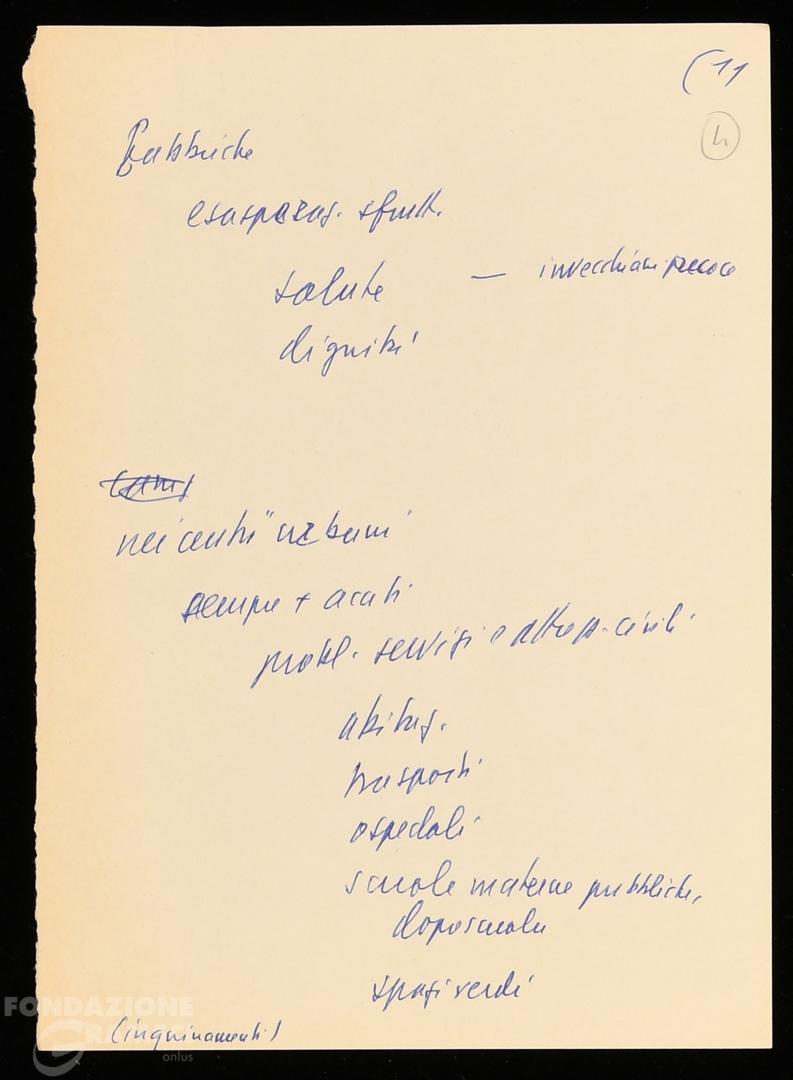 (11
4
Fabbriche
esasperaz. sfrutt.
salute — invecchiam. precoce
dignità
nei centri urbani
sempre + acuti
probl. servizi e attrezz. civili
abitaz.
trasporti
ospedali
scuole materne pubbliche,
doposcuola
spazi verdi
(inquinamenti)
FONDAZIONE
GRAMSCI
onlus